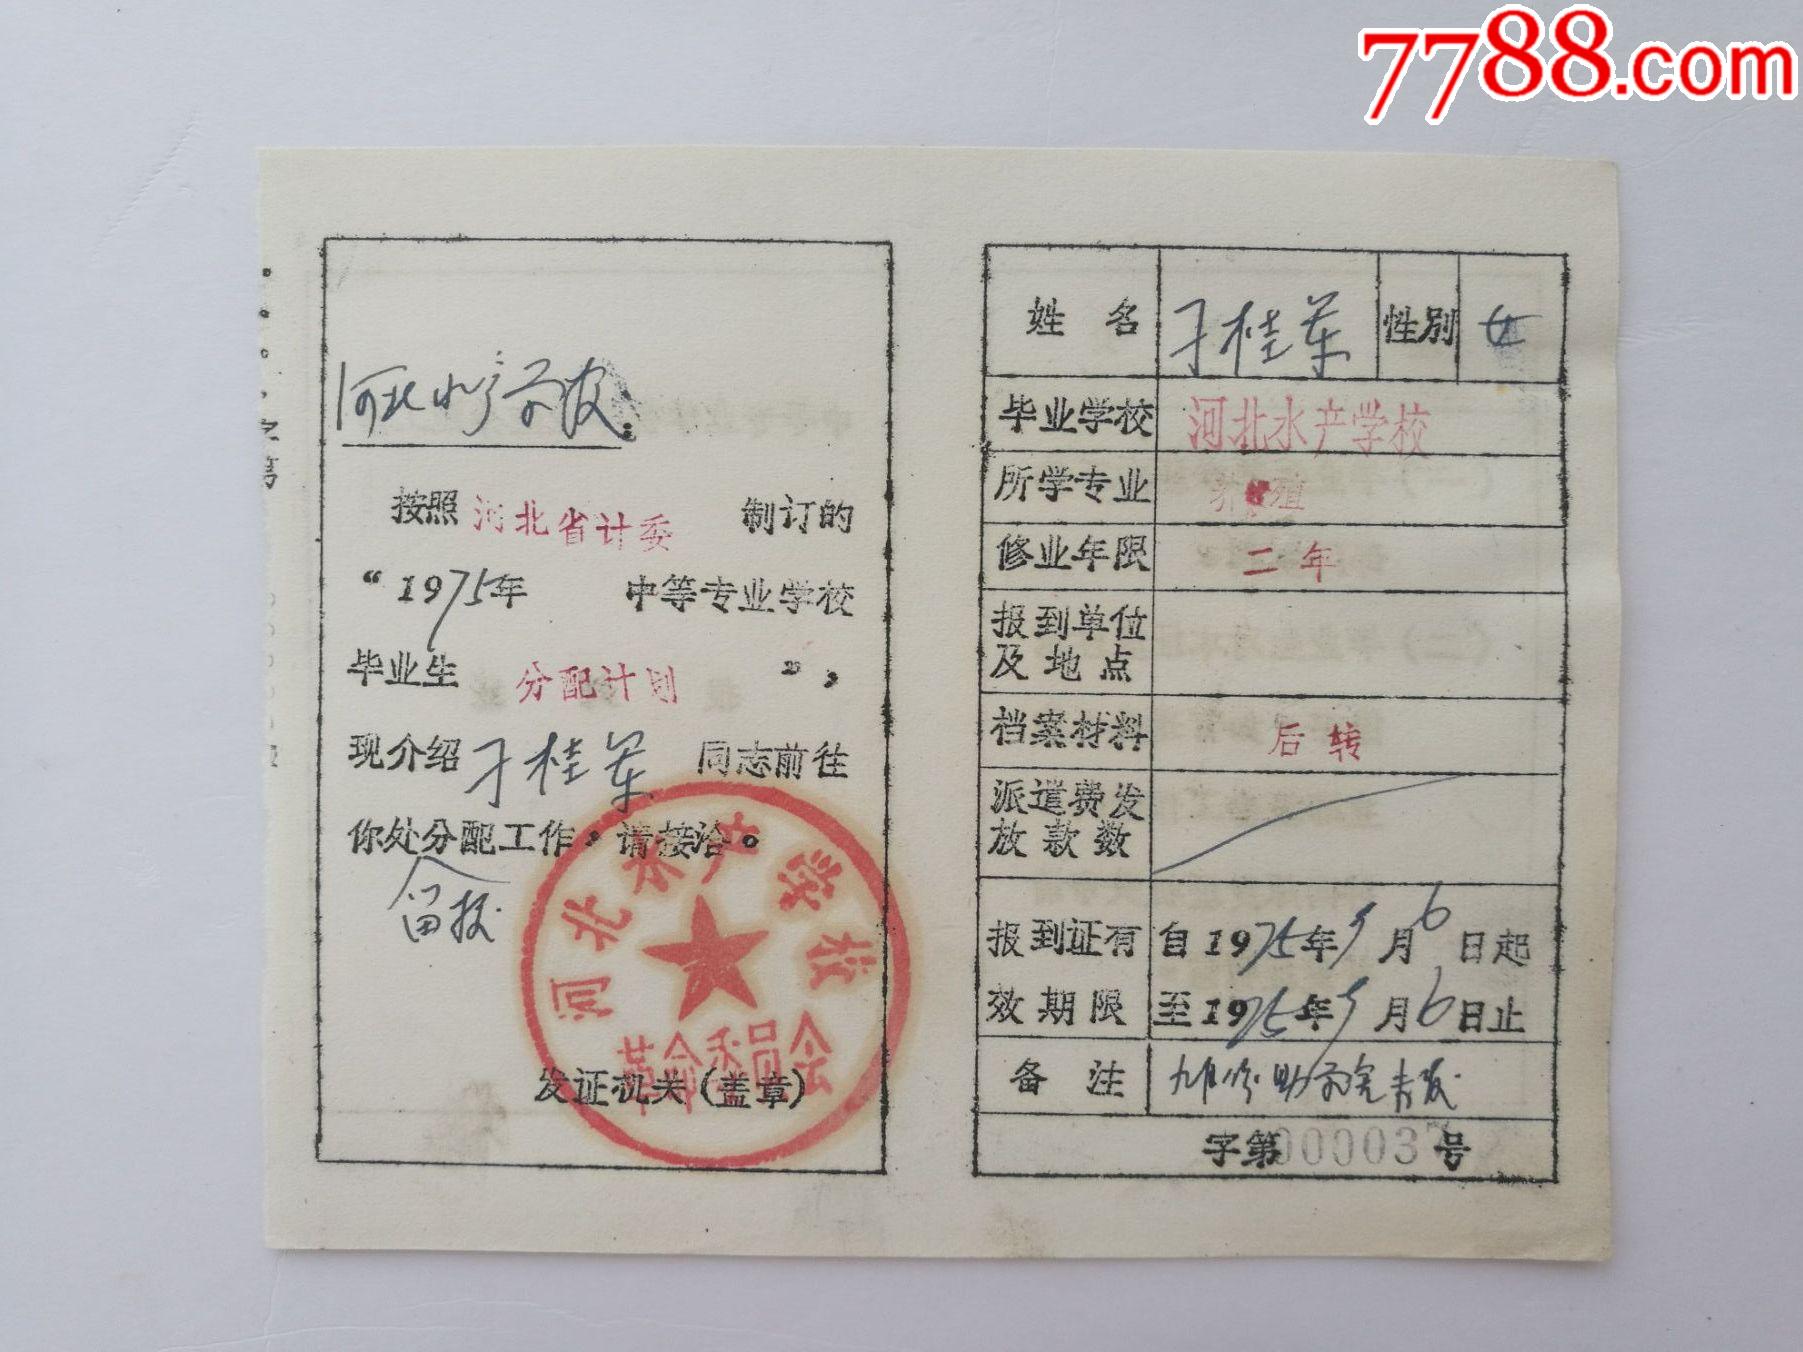 7788.com
河北水产学校:
按照 河北省计委 制订的
“1975年 中等专业学校
毕业生 分配计划 ”,
现介绍 桂军 同志前往
你处分配工作,请接洽。
留校
河北水产学校
革命委员会
发证机关(盖章)
姓名 桂军 性别 女
毕业学校 河北水产学校
所学专业 养殖
修业年限 二年
报到单位
及地点
档案材料 后转
派遣费发
放款数
报到证有 自1975年9月6日起
效期限 至1975年9月6日止
备注
字第 000037 号